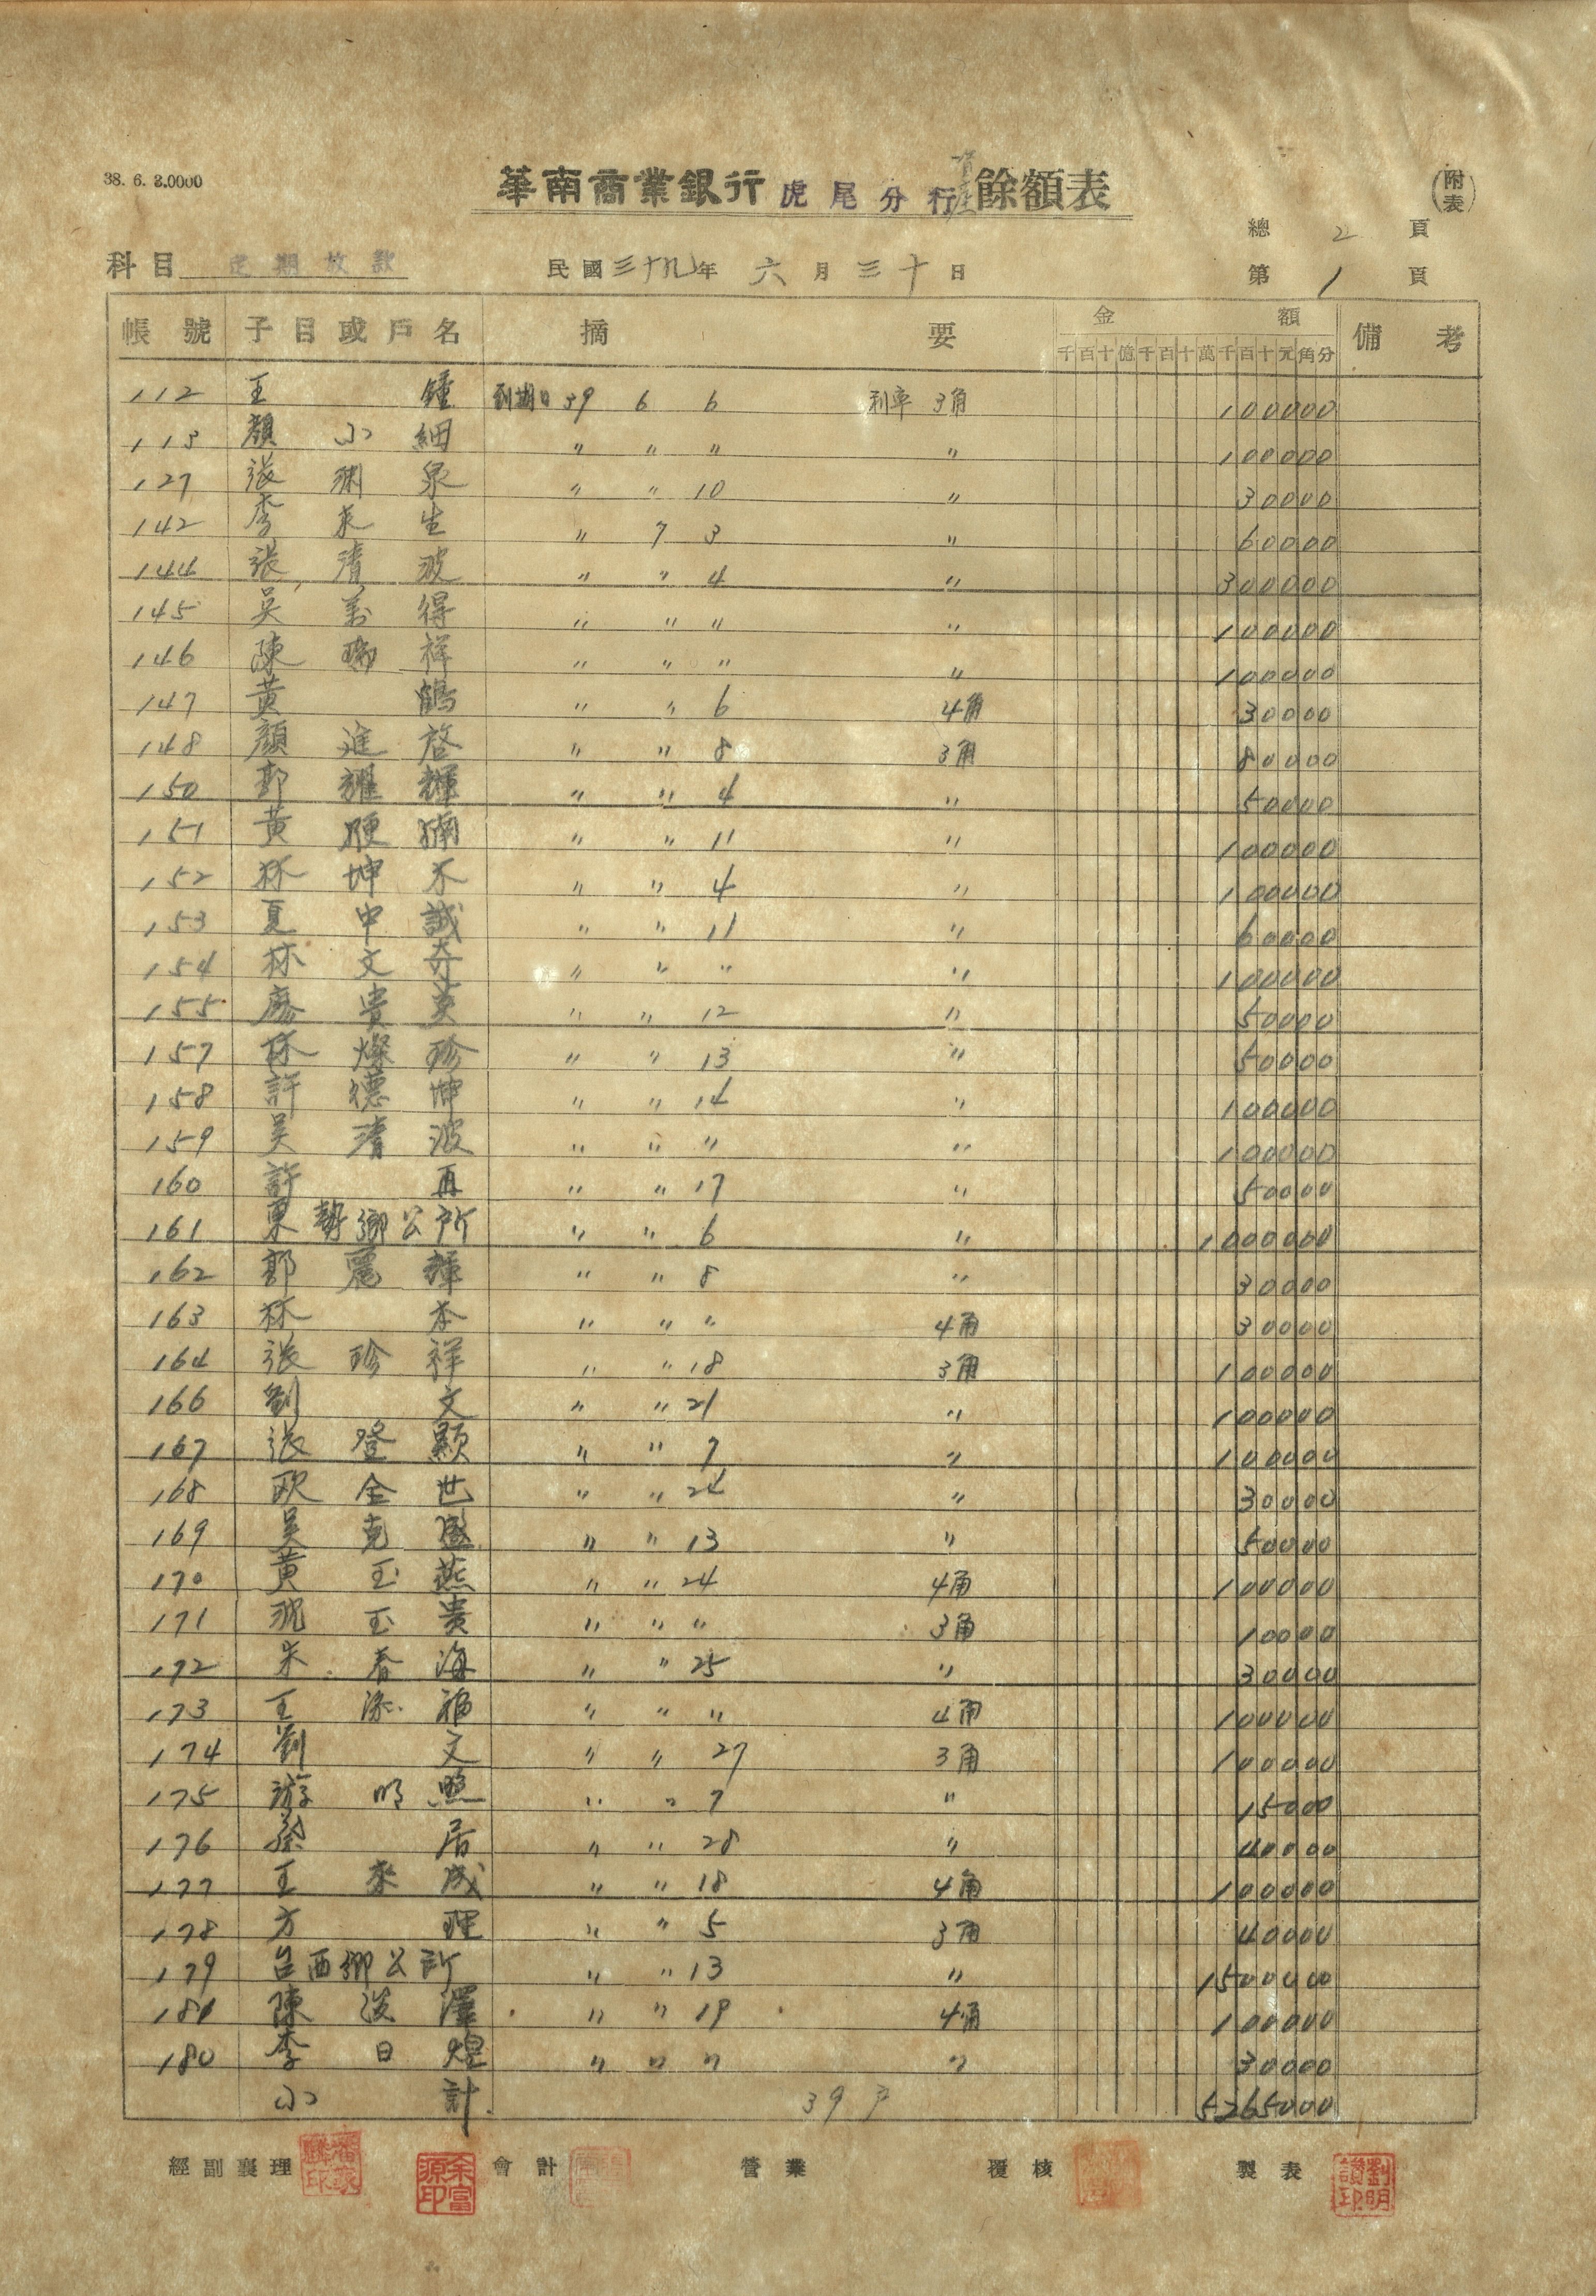 38. 6. 3.0000
華南商業銀行 虎尾分行 餘額表
(附表)
總 2 頁
科目 定期放款 民國三十九年 六月三十日 第 1 頁
帳號 子目或戶名 摘要 金額 備考
千百十億千百十萬千百十元角分
112 王鍾 到期日 39 6 6 利率 3角 100000
113 顏小細 〃 〃 〃 〃 100000
127 張渊泉 〃 〃 10 〃 30000
142 李永生 〃 7 3 〃 60000
144 張清波 〃 〃 4 〃 300000
145 吳萬得 〃 〃 〃 〃 100000
146 陳瑞祥 〃 〃 〃 〃 100000
147 黃鶴 〃 〃 6 4角 30000
148 顏進啓 〃 〃 8 3角 80000
150 郭耀輝 〃 〃 4 〃 50000
151 黃 〃 〃 11 〃 100000
152 林坤木 〃 〃 4 〃 100000
153 夏中誠 〃 〃 11 〃 60000
154 林文奇 〃 〃 〃 〃 100000
155 廖貴英 〃 〃 12 〃 50000
157 林燦珍 〃 〃 13 〃 50000
158 許德坤 〃 〃 14 〃 100000
159 吳清波 〃 〃 〃 〃 100000
160 許再 〃 〃 17 〃 50000
161 東勢鄉公所 〃 〃 6 〃 1000000
162 郭麗輝 〃 〃 8 〃 30000
163 林本 〃 〃 〃 4角 30000
164 張珍祥 〃 〃 18 3角 100000
166 劉文 〃 〃 21 〃 100000
167 張登顯 〃 〃 7 〃 100000
168 欧全世 〃 〃 24 〃 30000
169 吳克盛 〃 〃 13 〃 50000
170 黃玉燕 〃 〃 24 4角 100000
171 玉貴 〃 〃 〃 3角 10000
172 朱春海 〃 〃 25 〃 30000
173 王添福 〃 〃 〃 4角 100000
174 劉文 〃 〃 27 3角 100000
175 游明照 〃 〃 7 〃 15000
176 蔡居 〃 〃 28 〃 40000
177 王來成 〃 〃 18 4角 100000
178 方理 〃 〃 5 3角 40000
179 台西鄉公所 〃 〃 13 〃 1500000
181 陳淡澤 〃 〃 19 4角 100000
180 李日煌 〃 〃 〃 〃 30000
小計 39戶 5265000
經副襄理 余富源印 會計 營業 覆核 製表 劉明讚印